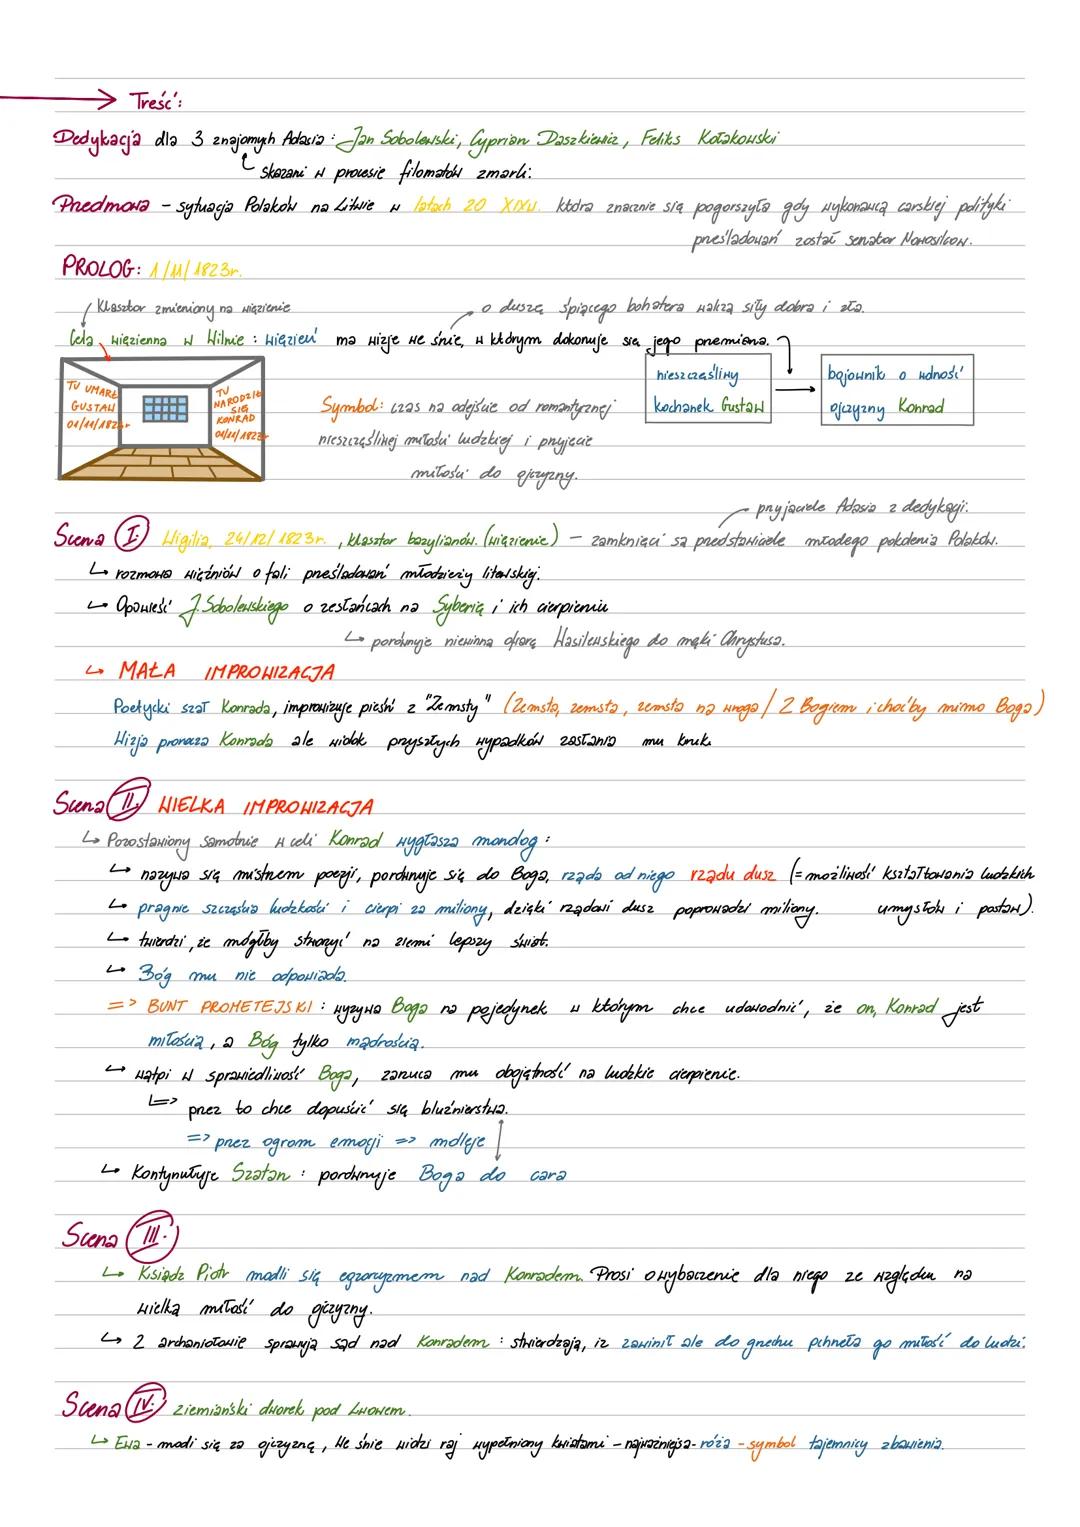 Treść:
Dedykacja dla 3 znajomych Adasia: Jan Sobolewski, Cyprian Daszkiewicz, Feliks Kołakowski
Skazani w procesie filomatów zmarli.
Przedmowa - sytuacja Polaków na Litwie w latach 20 XIXw. która znacznie się pogorszyła gdy wykonawcą carskiej polityki
prześladowań został senator Nowosilcow.
PROLOG: 1/11/1823r.
Klasztor zmieniony na więzienie
o duszę śpiącego bohatera walczą siły dobra i zła.
Cela więzienna w Wilnie: więzień ma wizje we śnie, w którym dokonuje się jego przemiana.
TU UMARŁ GUSTAW 01/11/1823r
TU NARODZIŁ SIĘ KONRAD 01/11/1823r
nieszczęśliwy
kochanek Gustaw
bojownik o wolność
ojczyzny Konrad
Symbol: czas na odejście od romantycznej
nieszczęśliwej miłości ludzkiej i przyjęcie
miłości do ojczyzny.
przyjaciele Adasia z dedykacji.
Scena I. Wigilia, 24/12/1823r., klasztor bazylianów. (więzienie) - zamknięci są przedstawiciele młodego pokolenia Polaków.
↳ rozmowa więźniów o fali prześladowań młodzieży litewskiej.
↳ Opowieść J. Sobolewskiego o zesłańcach na Syberię i ich cierpieniu
↳ porównuje niewinną ofiarę Wasilewskiego do męki Chrystusa.
↳ MAŁA IMPROWIZACJA
Poetycki szał Konrada, improwizuje pieśń z "Zemsty" (Zemsta, zemsta, zemsta na wroga / Z Bogiem i choćby mimo Boga)
Wizja prorocza Konrada ale widok przyszłych wypadków zasłania mu kruk.
Scena II. WIELKA IMPROWIZACJA
↳ Pozostawiony samotnie w celi Konrad wygłasza monolog:
↳ nazywa się mistrzem poezji, porównuje się do Boga, rząda od niego rządu dusz (= możliwość kształtowania ludzkich
umysłów i postaw).
↳ pragnie szczęścia ludzkości i cierpi za miliony, dzięki rządowi dusz poprowadzi miliony.
↳ twierdzi, że mógłby stworzyć na ziemi lepszy świat.
↳ Bóg mu nie odpowiada.
=> BUNT PROMETEJSKI: wyzywa Boga na pojedynek w którym chce udowodnić, że on, Konrad jest
miłością, a Bóg tylko mądrością.
↳ wątpi w sprawiedliwość Boga, zarzuca mu obojętność na ludzkie cierpienie.
↳=> przez to chce dopuścić się bluźnierstwa.
=> przez ogrom emocji => mdleje
↳ Kontynułuje Szatan: porównuje Boga do cara
Scena III.
↳ Ksiądz Piotr modli się egzorcyzmem nad Konradem. Prosi o wybaczenie dla niego ze względu na
wielką miłość do ojczyzny.
↳ 2 archaniołowie sprawują sąd nad Konradem: stwierdzają, iż zawinił ale do grzechu pchneła go miłość do ludzi.
Scena IV. ziemiański dworek pod Lwowem.
↳ Ewa - modi się za ojczyznę, we śnie widzi raj wypełniony kwiatami - najważniejsza - róża - symbol tajemnicy zbawienia.